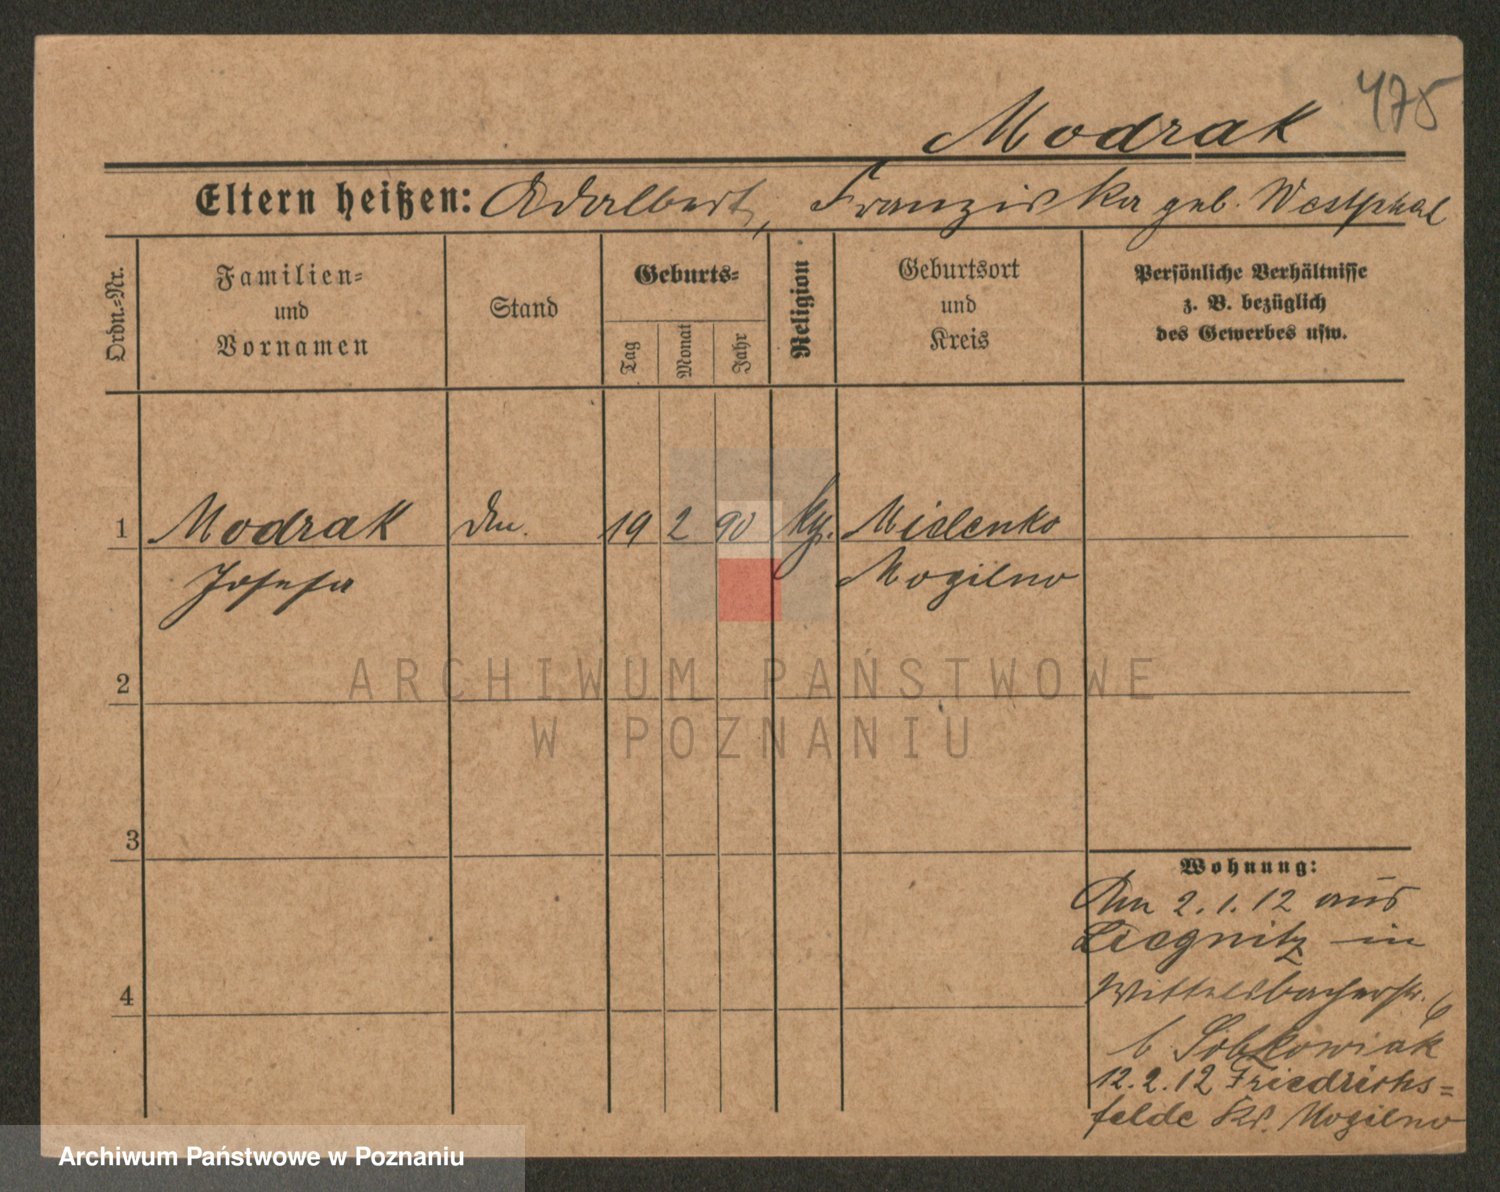 475
Modrak
Eltern heißen: Adalbert, Franziska geb. Westphal
Ordn.-Nr.
Familien-
und
Vornamen
Stand
Geburts-
Tag
Monat
Jahr
Religion
Geburtsort
und
Kreis
Persönliche Verhältnisse
z. B. bezüglich
des Gewerbes usw.
1 Modrak 19 2 90 Mielenko
Josefa Mogilno
2
3
4
Wohnung:
Am 2.1.12 aus
Liegnitz in
Wittelsbacherstr. 6
b. Sobkowiak
12.2.12 Friedrichs=
felde Kr. Mogilno
ARCHIWUM PAŃSTWOWE
W POZNANIU
Archiwum Państwowe w Poznaniu